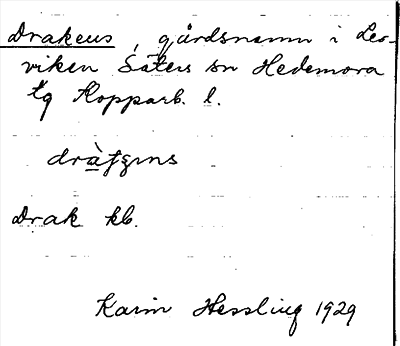 Drakens, gårdsnamn i Ler-
viken Säters sn Hedemora
tg Kopparb. l.
Drak kb.
Karin Hessling 1929